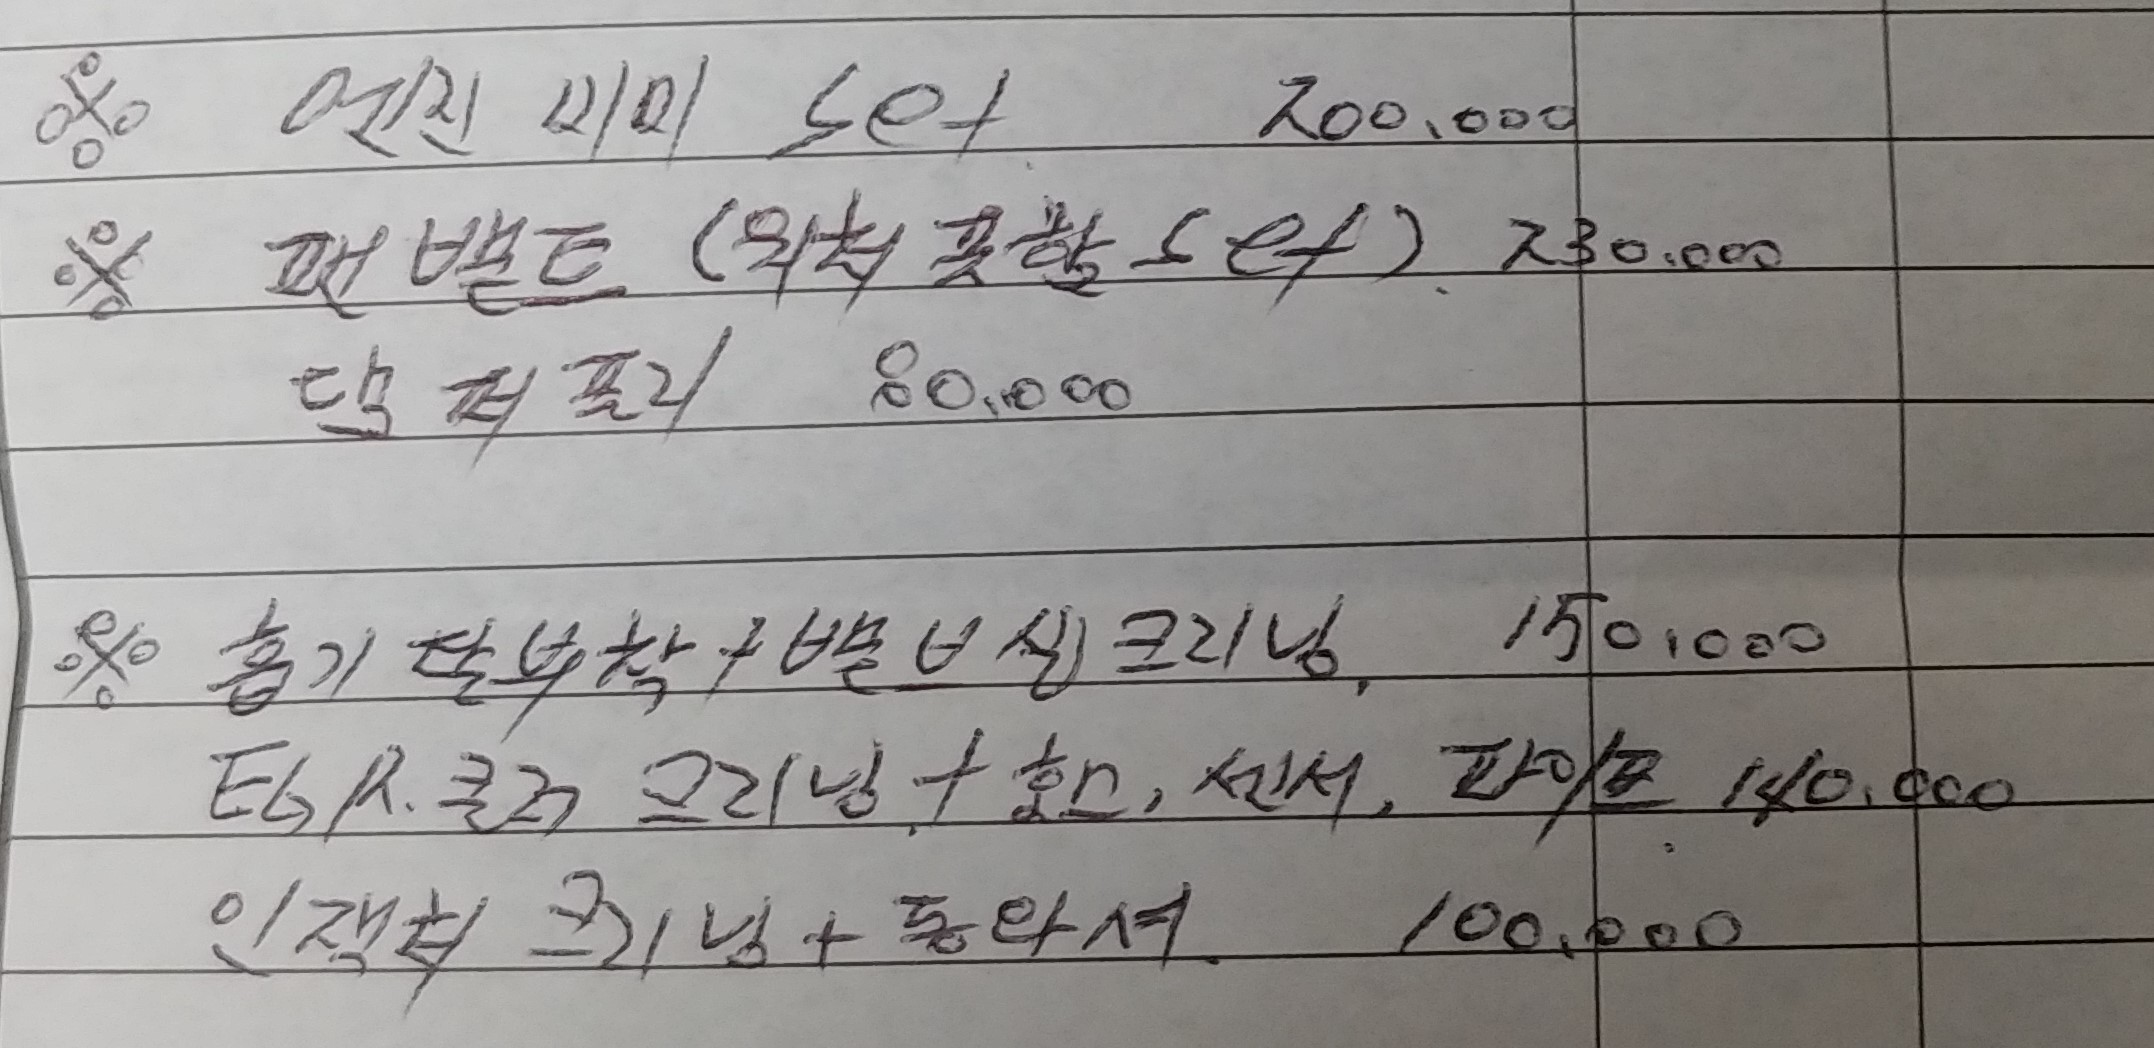 ※ 엔진 미미 set 200.000
※ 팬 벨트 (워터 폼프 set) 230.000
담퍼 풀리 80.000
※ 흡기 탈부착 + 밸브 씽 크리닝. 150.000
EGR. 쿨러 크리닝 + 호스, 센서, 파이프 140.000
인잭터 크리닝 + 동와셔 100.000